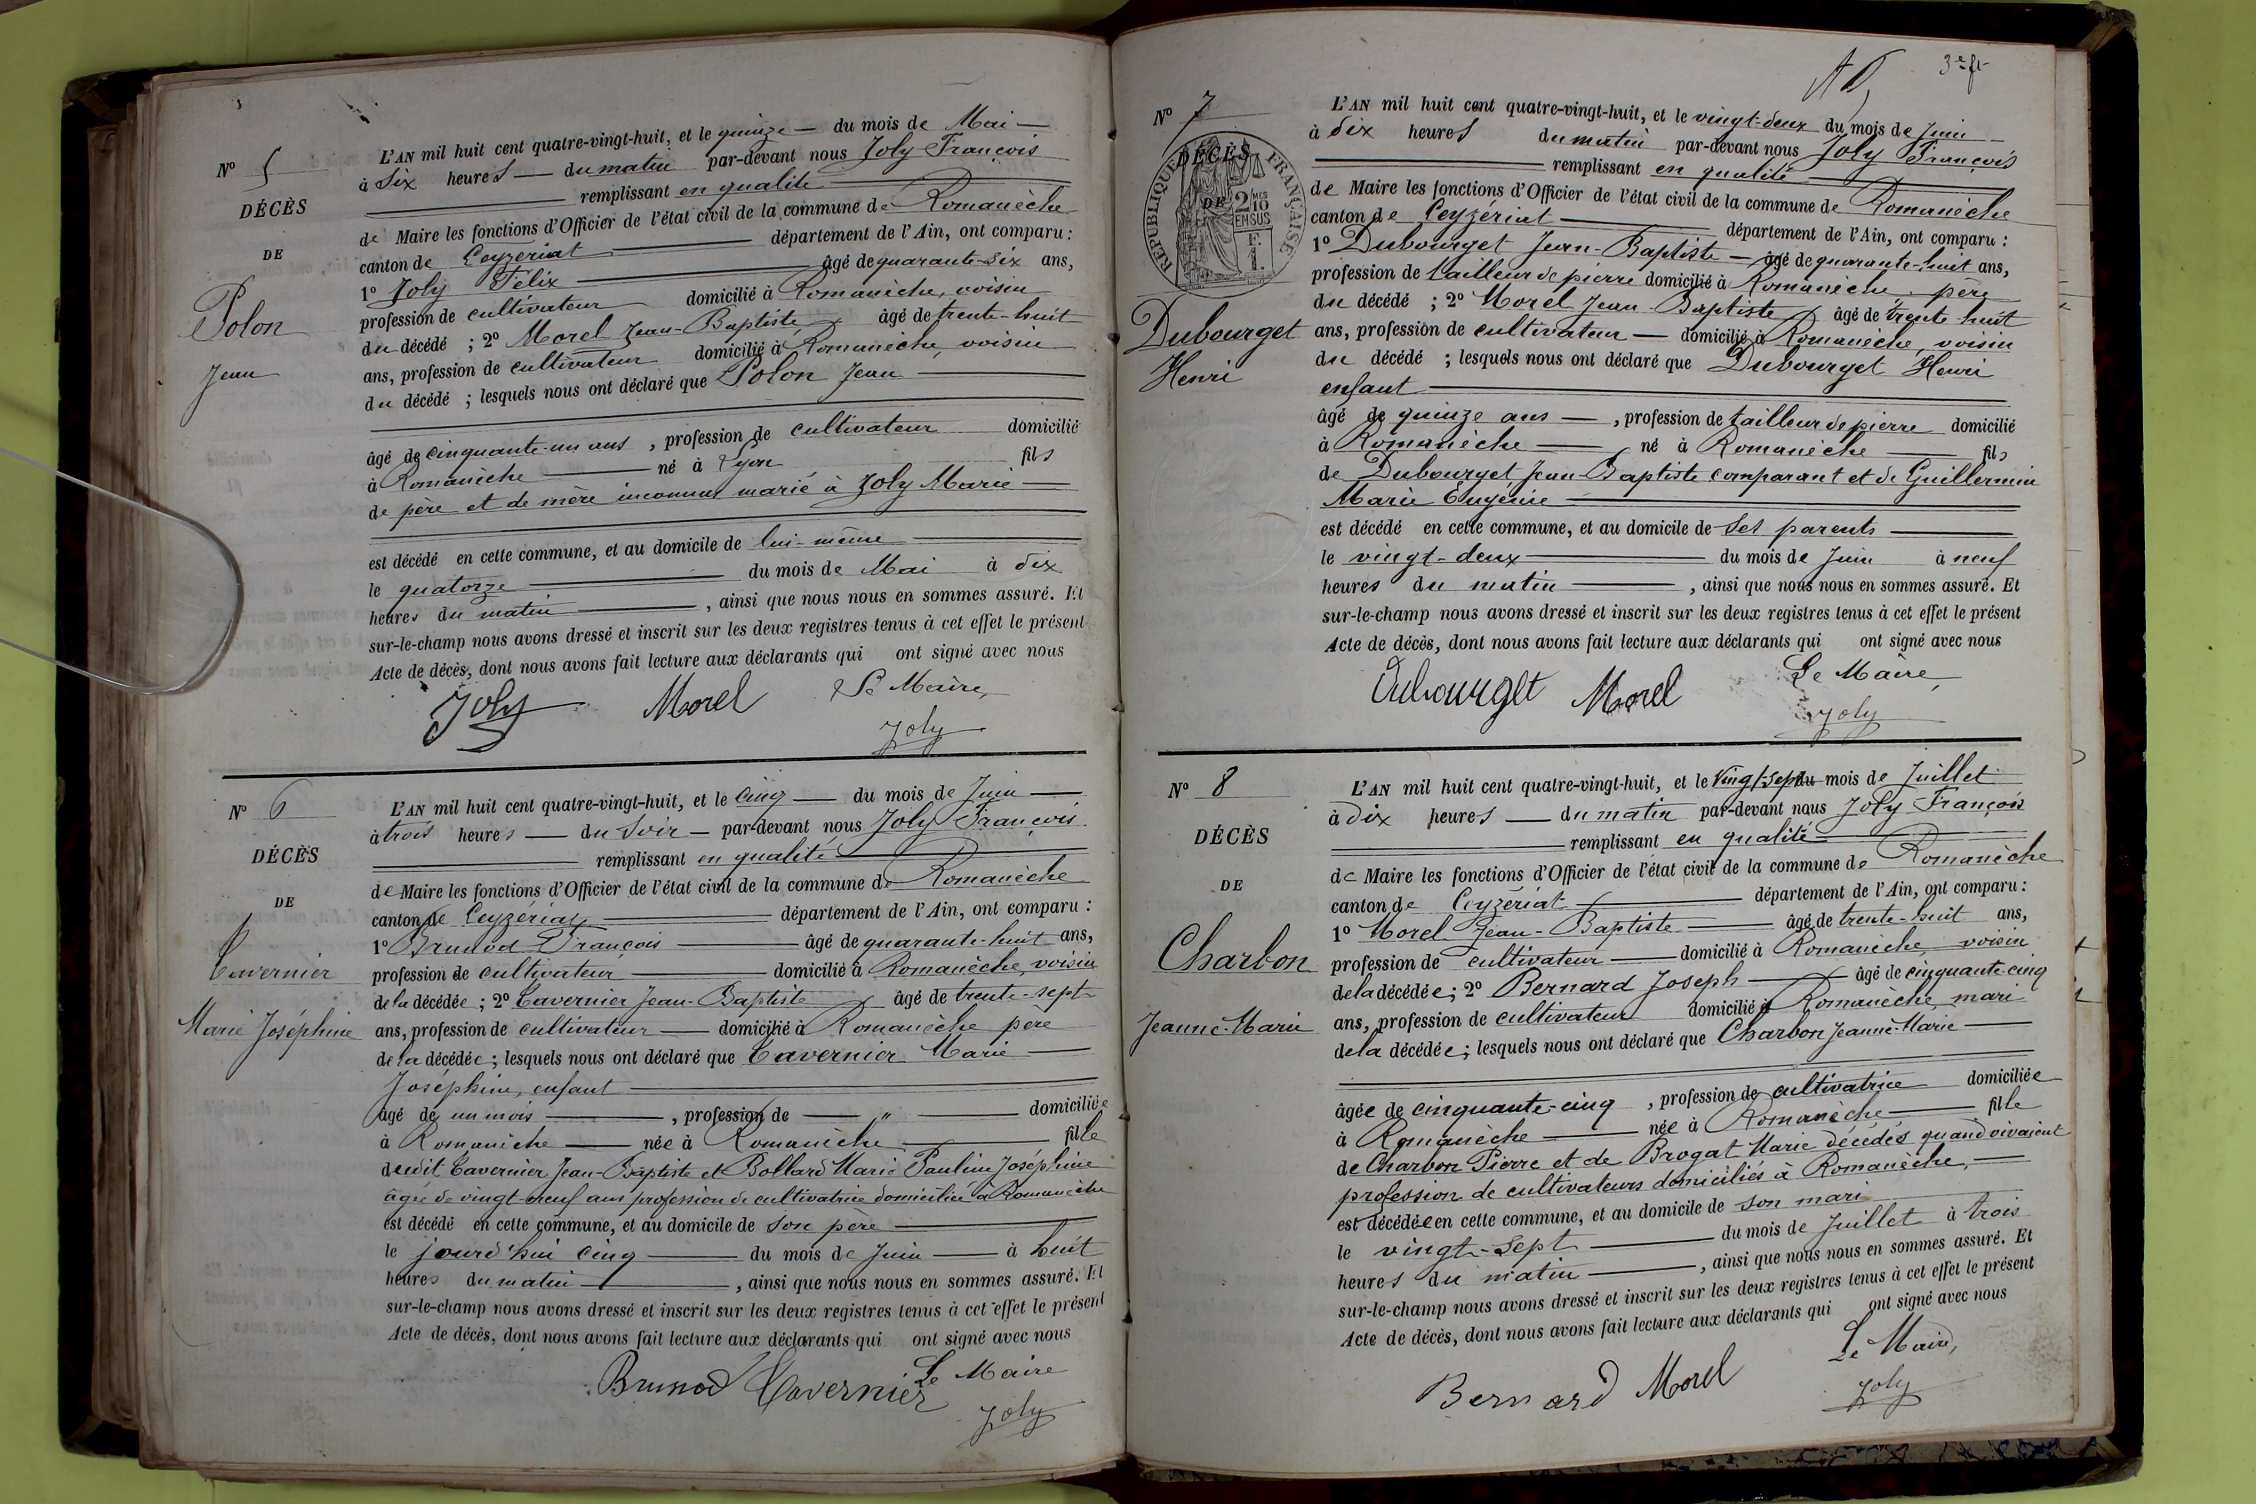 N° 5
DÉCÈS
DE
Polon
Jean
L'AN mil huit cent quatre-vingt-huit, et le quinze du mois de Mai
à six heures du matin par-devant nous Joly François
remplissant en qualité
de Maire les fonctions d'Officier de l'état civil de la commune de Romanèche
canton de Ceyzériat département de l'Ain, ont comparu :
1° Joly Félix âgé de quarante-six ans,
profession de cultivateur domicilié à Romanèche, voisin
du décédé ; 2° Morel Jean-Baptiste âgé de trente-huit
ans, profession de cultivateur domicilié à Romanèche, voisin
du décédé ; lesquels nous ont déclaré que Polon Jean
âgé de cinquante-un ans, profession de cultivateur domicilié
à Romanèche né à Lyon fils
de père et de mère inconnus marié à Joly Marie
est décédé en cette commune, et au domicile de lui-même
le quatorze du mois de Mai à dix
heures du matin, ainsi que nous nous en sommes assuré. Et
sur-le-champ nous avons dressé et inscrit sur les deux registres tenus à cet effet le présent
Acte de décès, dont nous avons fait lecture aux déclarants qui ont signé avec nous
Joly Morel Le Maire,
Joly
N° 6
DÉCÈS
DE
Tavernier
Marie Joséphine
L'AN mil huit cent quatre-vingt-huit, et le cinq du mois de Juin
à trois heures du soir par-devant nous Joly François
remplissant en qualité
de Maire les fonctions d'Officier de l'état civil de la commune de Romanèche
canton de Ceyzériat département de l'Ain, ont comparu :
1° Brunod François âgé de quarante-huit ans,
profession de cultivateur domicilié à Romanèche, voisin
de la décédée ; 2° Tavernier Jean-Baptiste âgé de trente-sept
ans, profession de cultivateur domicilié à Romanèche père
de la décédée ; lesquels nous ont déclaré que Tavernier Marie
Joséphine, enfant
âgé de un mois, profession de " domiciliée
à Romanèche née à Romanèche fille
dudit Tavernier Jean-Baptiste et Bollard Marie Pauline Joséphine
âgée de vingt-neuf ans profession de cultivatrice domiciliée à Romanèche
est décédé en cette commune, et au domicile de son père
le jourd'hui cinq du mois de Juin à huit
heures du matin, ainsi que nous nous en sommes assuré. Et
sur-le-champ nous avons dressé et inscrit sur les deux registres tenus à cet effet le présent
Acte de décès, dont nous avons fait lecture aux déclarants qui ont signé avec nous
Brunod Tavernier Le Maire
Joly
3e ft
N° 7
DÉCÈS
DE
RÉPUBLIQUE FRANÇAISE
2/10 EN SUS
Dubourget
Henri
L'AN mil huit cent quatre-vingt-huit, et le vingt-deux du mois de Juin
à dix heures du matin par-devant nous Joly François
remplissant en qualité
de Maire les fonctions d'Officier de l'état civil de la commune de Romanèche
canton de Ceyzériat département de l'Ain, ont comparu :
1° Dubourget Jean-Baptiste âgé de quarante-huit ans,
profession de tailleur de pierre domicilié à Romanèche père
du décédé ; 2° Morel Jean-Baptiste âgé de trente-huit
ans, profession de cultivateur domicilié à Romanèche, voisin
du décédé ; lesquels nous ont déclaré que Dubourget Henri
enfant
âgé de quinze ans, profession de tailleur de pierre domicilié
à Romanèche né à Romanèche fils
de Dubourget Jean-Baptiste comparant et de Guillermin
Marie Eugénie
est décédé en cette commune, et au domicile de ses parents
le vingt-deux du mois de Juin à neuf
heures du matin, ainsi que nous nous en sommes assuré. Et
sur-le-champ nous avons dressé et inscrit sur les deux registres tenus à cet effet le présent
Acte de décès, dont nous avons fait lecture aux déclarants qui ont signé avec nous
Dubourget Morel Le Maire,
Joly
N° 8
DÉCÈS
DE
Charbon
Jeanne-Marie
L'AN mil huit cent quatre-vingt-huit, et le Vingt-sept du mois de Juillet
à dix heures du matin par-devant nous Joly François
remplissant en qualité
de Maire les fonctions d'Officier de l'état civil de la commune de Romanèche
canton de Ceyzériat département de l'Ain, ont comparu :
1° Morel Jean-Baptiste âgé de trente-huit ans,
profession de cultivateur domicilié à Romanèche, voisin
de la décédée ; 2° Bernard Joseph âgé de cinquante-cinq
ans, profession de cultivateur domicilié à Romanèche, mari
de la décédée ; lesquels nous ont déclaré que Charbon Jeanne-Marie
âgée de cinquante-cinq, profession de cultivatrice domiciliée
à Romanèche née à Romanèche fille
de Charbon Pierre et de Brogat Marie décédés quand vivaient
profession de cultivateurs domiciliés à Romanèche,
est décédée en cette commune, et au domicile de son mari
le vingt-sept du mois de Juillet à trois
heures du matin, ainsi que nous nous en sommes assuré. Et
sur-le-champ nous avons dressé et inscrit sur les deux registres tenus à cet effet le présent
Acte de décès, dont nous avons fait lecture aux déclarants qui ont signé avec nous
Bernard Morel Le Maire,
Joly